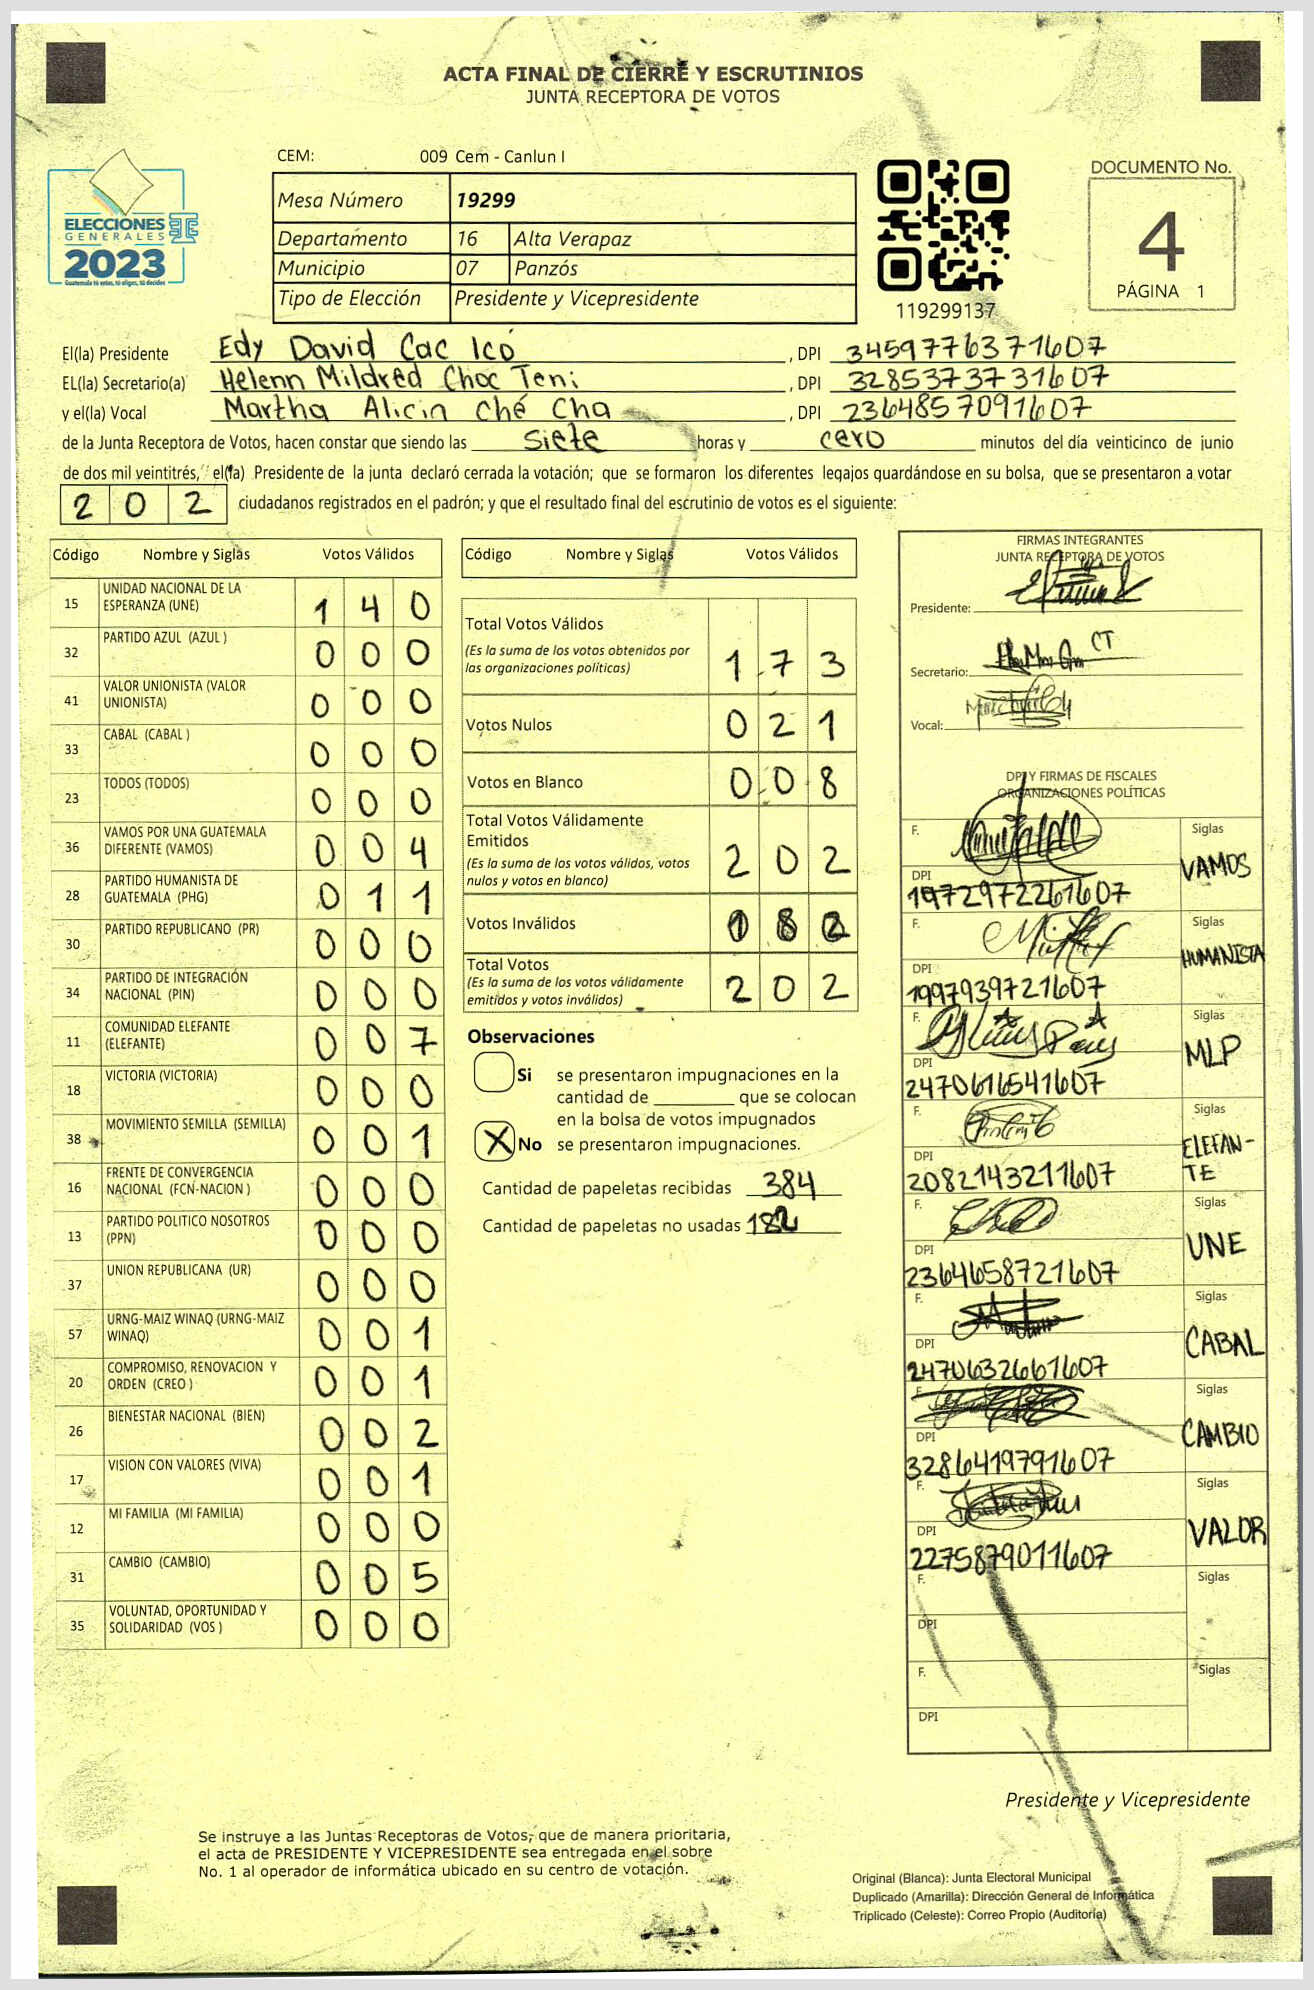 ACTA FINAL DE CIERRE Y ESCRUTINIOS
JUNTA RECEPTORA DE VOTOS
CEM: 009 Cem - Canlun I
ELECCIONES
GENERALES
2023
Guatemala tú votas, tú eliges, tú decides
Mesa Número 19299
Departamento 16 Alta Verapaz
Municipio 07 Panzós
Tipo de Elección Presidente y Vicepresidente
119299137
DOCUMENTO No.
4
PÁGINA 1
El(la) Presidente Edy David Cac Icó, DPI 3459776371607
EL(la) Secretario(a) Helenn Mildred Choc Teni, DPI 3285373731607
y el(la) Vocal Martha Alicia Ché Cha, DPI 2364857091607
de la Junta Receptora de Votos, hacen constar que siendo las siete horas y cero minutos del día veinticinco de junio
de dos mil veintitrés, el(la) Presidente de la junta declaró cerrada la votación; que se formaron los diferentes legajos guardándose en su bolsa, que se presentaron a votar
202 ciudadanos registrados en el padrón; y que el resultado final del escrutinio de votos es el siguiente:
Código Nombre y Siglas Votos Válidos
15 UNIDAD NACIONAL DE LA ESPERANZA (UNE) 1 4 0
32 PARTIDO AZUL (AZUL ) 0 0 0
41 VALOR UNIONISTA (VALOR UNIONISTA) 0 0 0
33 CABAL (CABAL ) 0 0 0
23 TODOS (TODOS) 0 0 0
36 VAMOS POR UNA GUATEMALA DIFERENTE (VAMOS) 0 0 4
28 PARTIDO HUMANISTA DE GUATEMALA (PHG) 0 1 1
30 PARTIDO REPUBLICANO (PR) 0 0 0
34 PARTIDO DE INTEGRACIÓN NACIONAL (PIN) 0 0 0
11 COMUNIDAD ELEFANTE (ELEFANTE) 0 0 7
18 VICTORIA (VICTORIA) 0 0 0
38 MOVIMIENTO SEMILLA (SEMILLA) 0 0 1
16 FRENTE DE CONVERGENCIA NACIONAL (FCN-NACION ) 0 0 0
13 PARTIDO POLITICO NOSOTROS (PPN) 0 0 0
37 UNION REPUBLICANA (UR) 0 0 0
57 URNG-MAIZ WINAQ (URNG-MAIZ WINAQ) 0 0 1
20 COMPROMISO, RENOVACION Y ORDEN (CREO ) 0 0 1
26 BIENESTAR NACIONAL (BIEN) 0 0 2
17 VISION CON VALORES (VIVA) 0 0 1
12 MI FAMILIA (MI FAMILIA) 0 0 0
31 CAMBIO (CAMBIO) 0 0 5
35 VOLUNTAD, OPORTUNIDAD Y SOLIDARIDAD (VOS ) 0 0 0
Código Nombre y Siglas Votos Válidos
Total Votos Válidos 1 7 3
(Es la suma de los votos obtenidos por
las organizaciones políticas)
Votos Nulos 0 2 1
Votos en Blanco 0 0 8
Total Votos Válidamente
Emitidos 2 0 2
(Es la suma de los votos válidos, votos
nulos y votos en blanco)
Votos Inválidos
Total Votos 2 0 2
(Es la suma de los votos válidamente
emitidos y votos inválidos)
Observaciones
Si se presentaron impugnaciones en la
cantidad de ________ que se colocan
en la bolsa de votos impugnados
X No se presentaron impugnaciones.
Cantidad de papeletas recibidas 384
Cantidad de papeletas no usadas 182
FIRMAS INTEGRANTES
JUNTA RECEPTORA DE VOTOS
Presidente:
Secretario: CT
Vocal:
DPI Y FIRMAS DE FISCALES
ORGANIZACIONES POLÍTICAS
F. Siglas VAMOS
DPI 1972972261607
F. Siglas HUMANISTA
DPI 1997939721607
F. Siglas MLP
DPI 2470616541607
F. Siglas ELEFAN-
TE
DPI 2082143211607
F. Siglas UNE
DPI 2364658721607
F. Siglas CABAL
DPI 2470632661607
F. Siglas CAMBIO
DPI 3286419791607
F. Siglas VALOR
DPI 2275879011607
F. Siglas
DPI
F. Siglas
DPI
Presidente y Vicepresidente
Se instruye a las Juntas Receptoras de Votos, que de manera prioritaria,
el acta de PRESIDENTE Y VICEPRESIDENTE sea entregada en el sobre
No. 1 al operador de informática ubicado en su centro de votación.
Original (Blanca): Junta Electoral Municipal
Duplicado (Amarilla): Dirección General de Informática
Triplicado (Celeste): Correo Propio (Auditoría)